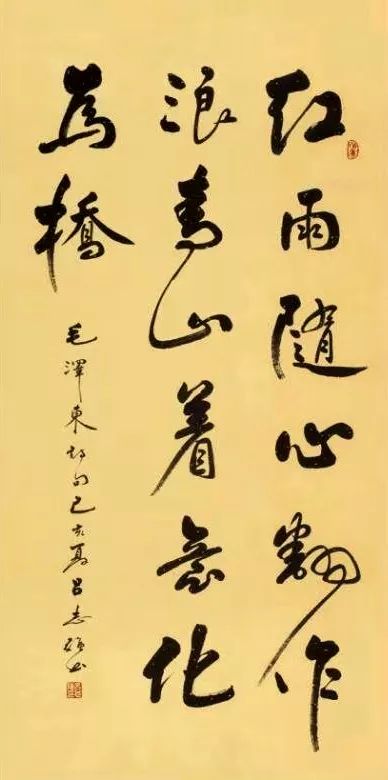 红雨隨心翻作
浪青山着意化
為橋
毛澤東诗句己亥夏吕志书